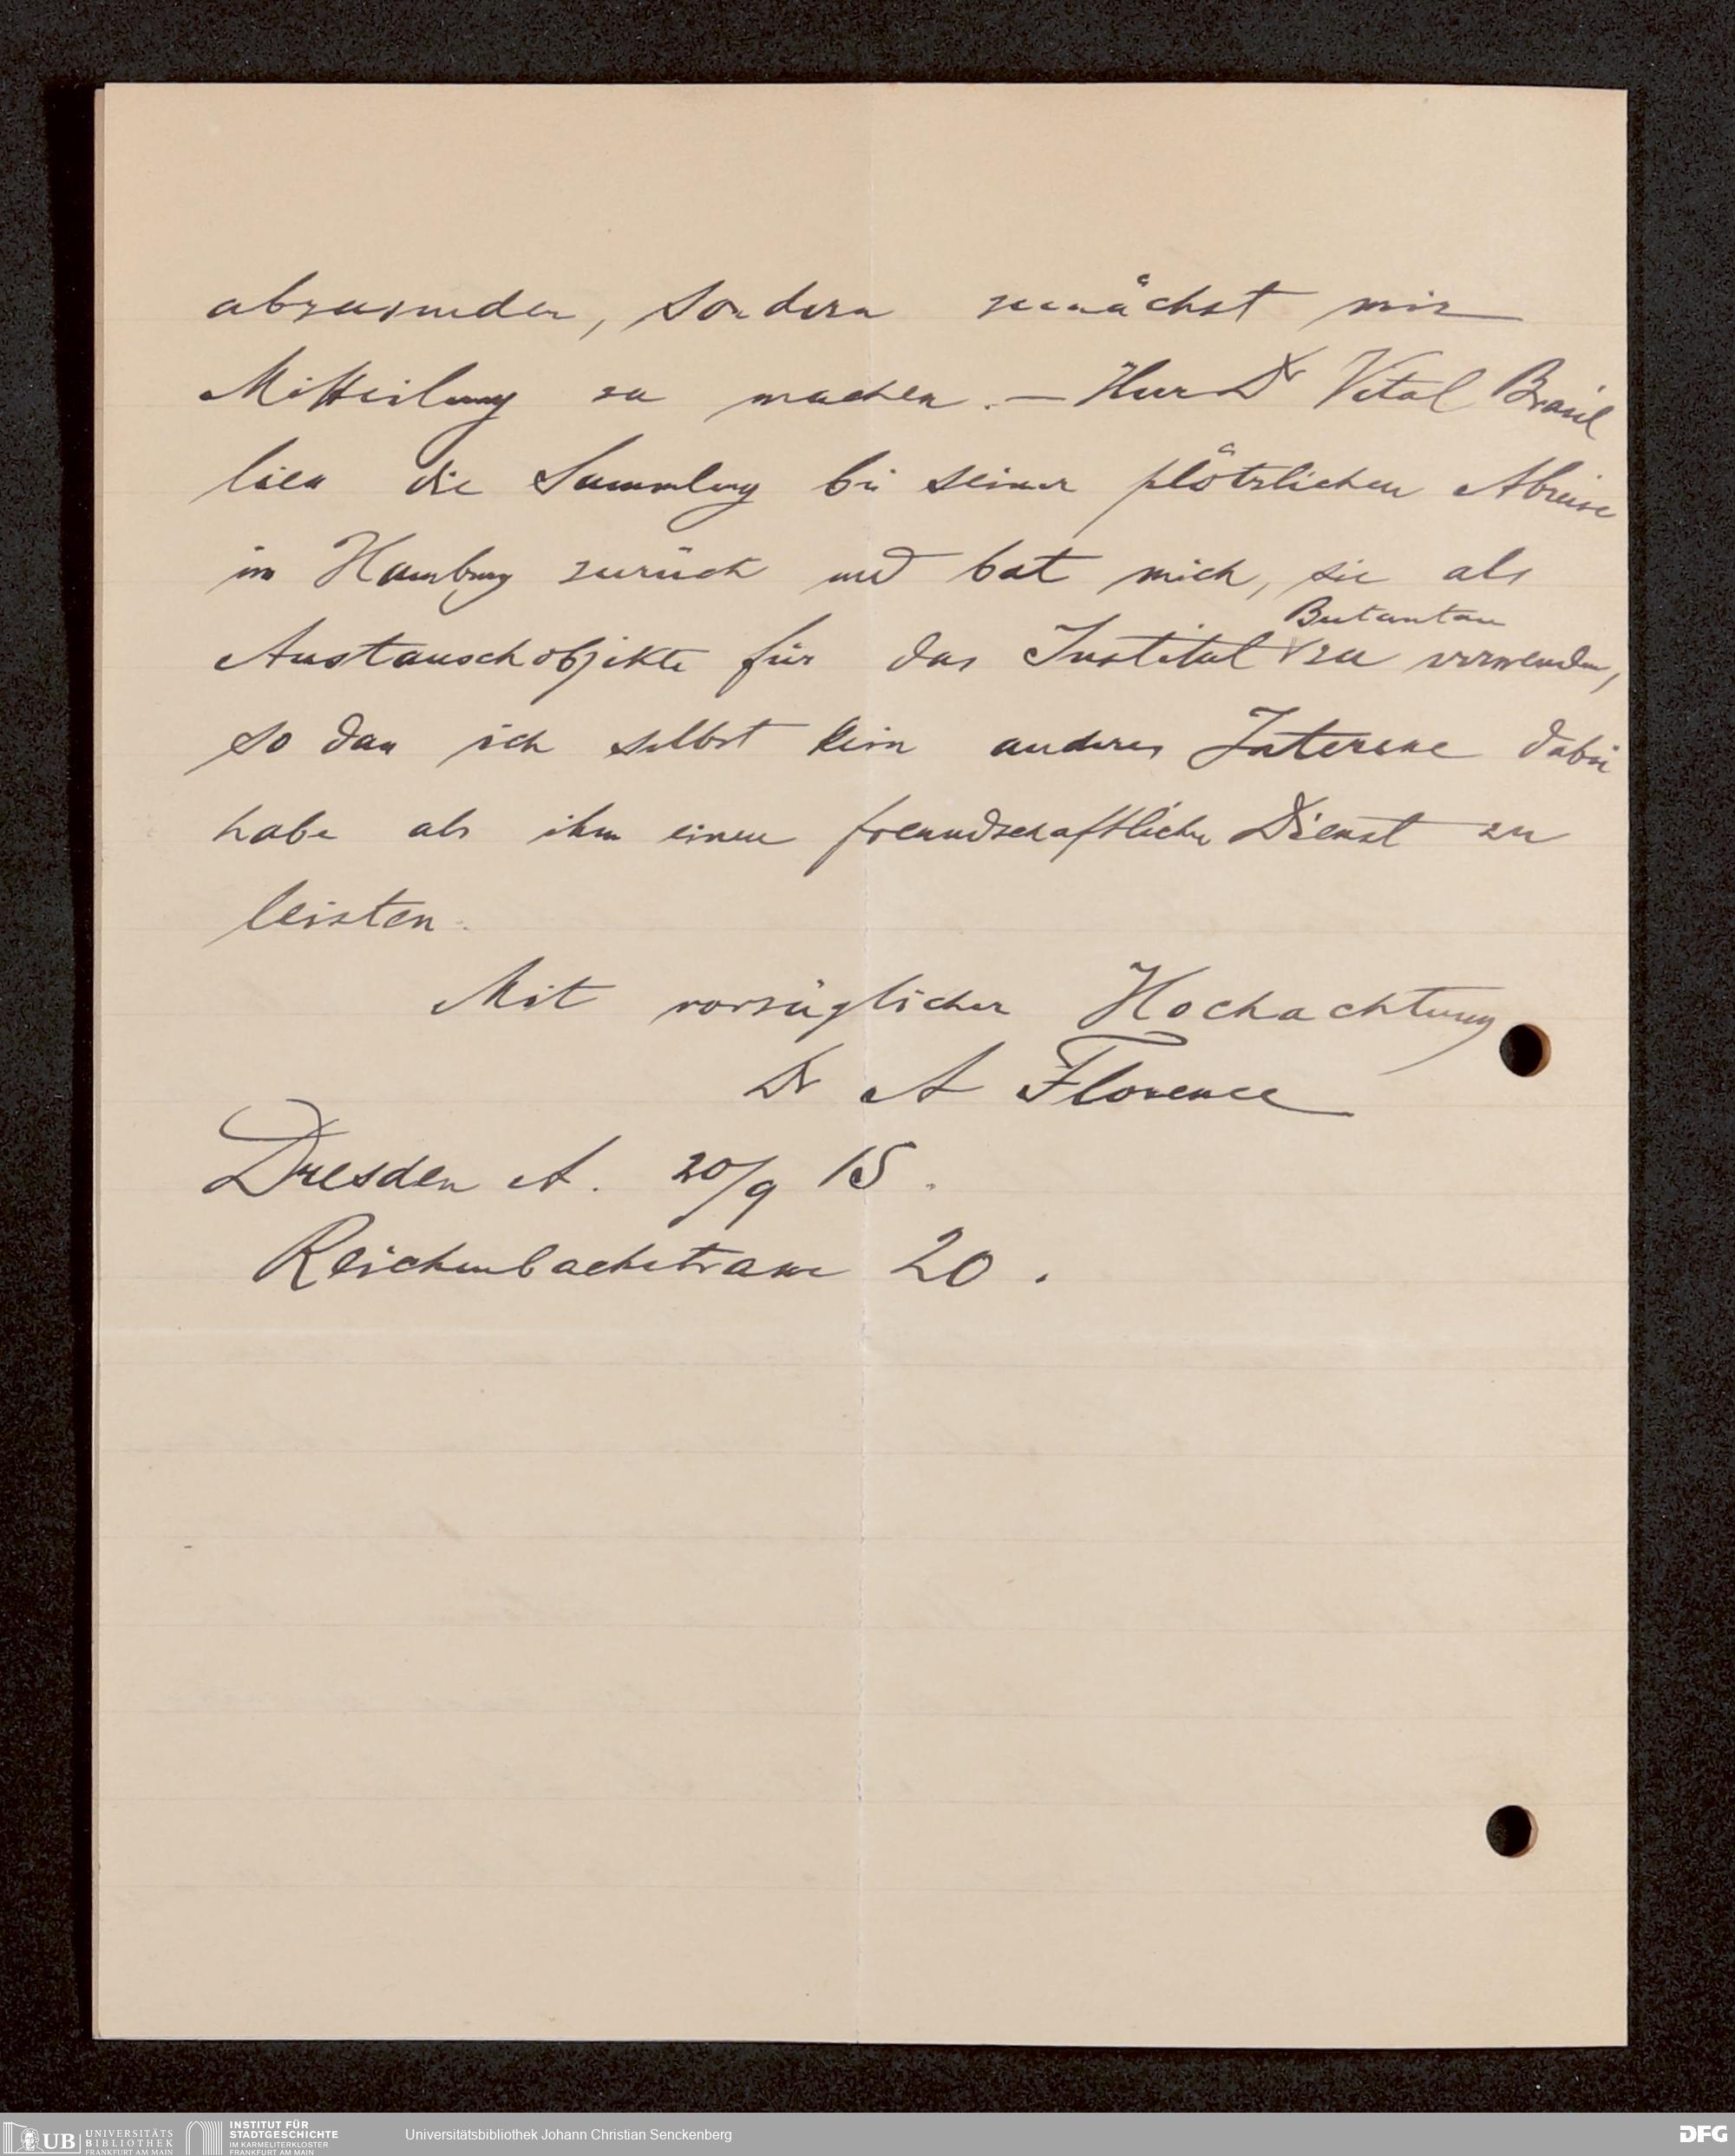 abzusenden, sondern zunächst mir
Mitteilung zu machen. – Herr Dr Vital Brasil
liess die Sammlung bei seiner plötzlichen Abreise
in Hamburg zurück und bat mich, sie als
Butantan
Austauschobjekte für das Institut zu verwenden,
so dass ich selbst kein anderes Interesse dabei
habe als ihm einen freundschaftlichen Dienst zu
leisten.
Mit vorzüglicher Hochachtung
Dr A Florence
Dresden A. 20/9 15.
Reichenbachstrasse 20.
UB UNIVERSITÄTS
BIBLIOTHEK
FRANKFURT AM MAIN
INSTITUT FÜR
STADTGESCHICHTE
IM KARMELITERKLOSTER
FRANKFURT AM MAIN
Universitätsbibliothek Johann Christian Senckenberg
DFG